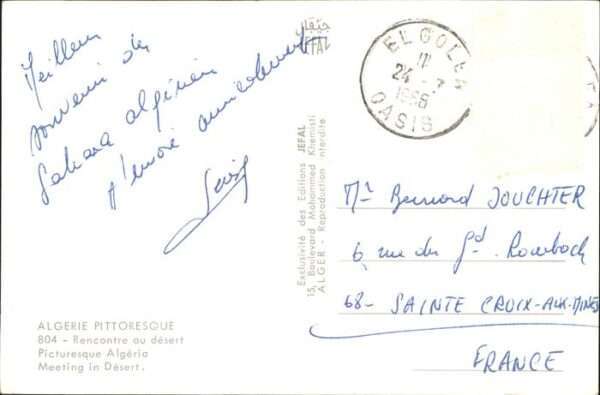 Meilleur
souvenir du
Sahara algérien
J'envoie amicalement
ALGERIE PITTORESQUE
804 - Rencontre au désert
Picturesque Algéria
Meeting in Désert.
جفال
JEFAL
Exclusivité des Editions JEFAL
15, Boulevard Mohammed Khemisti
ALGER - Reproduction interdite
EL GOLEA
24 - 7
1968
OASIS
Mr Bernard JOUCHTER
6, rue du Gd Rombach
68 - SAINTE CROIX-AUX-MINES
FRANCE